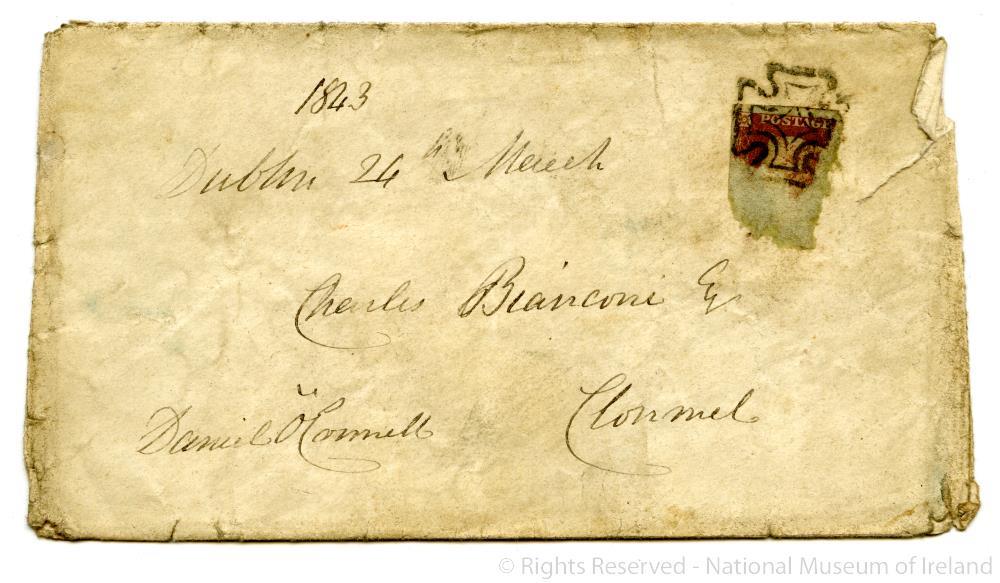 1843
POSTAGE
Dublin 24th March
Charles Bianconi Esq
Daniel O'Connell
Clonmel
© Rights Reserved - National Museum of Ireland